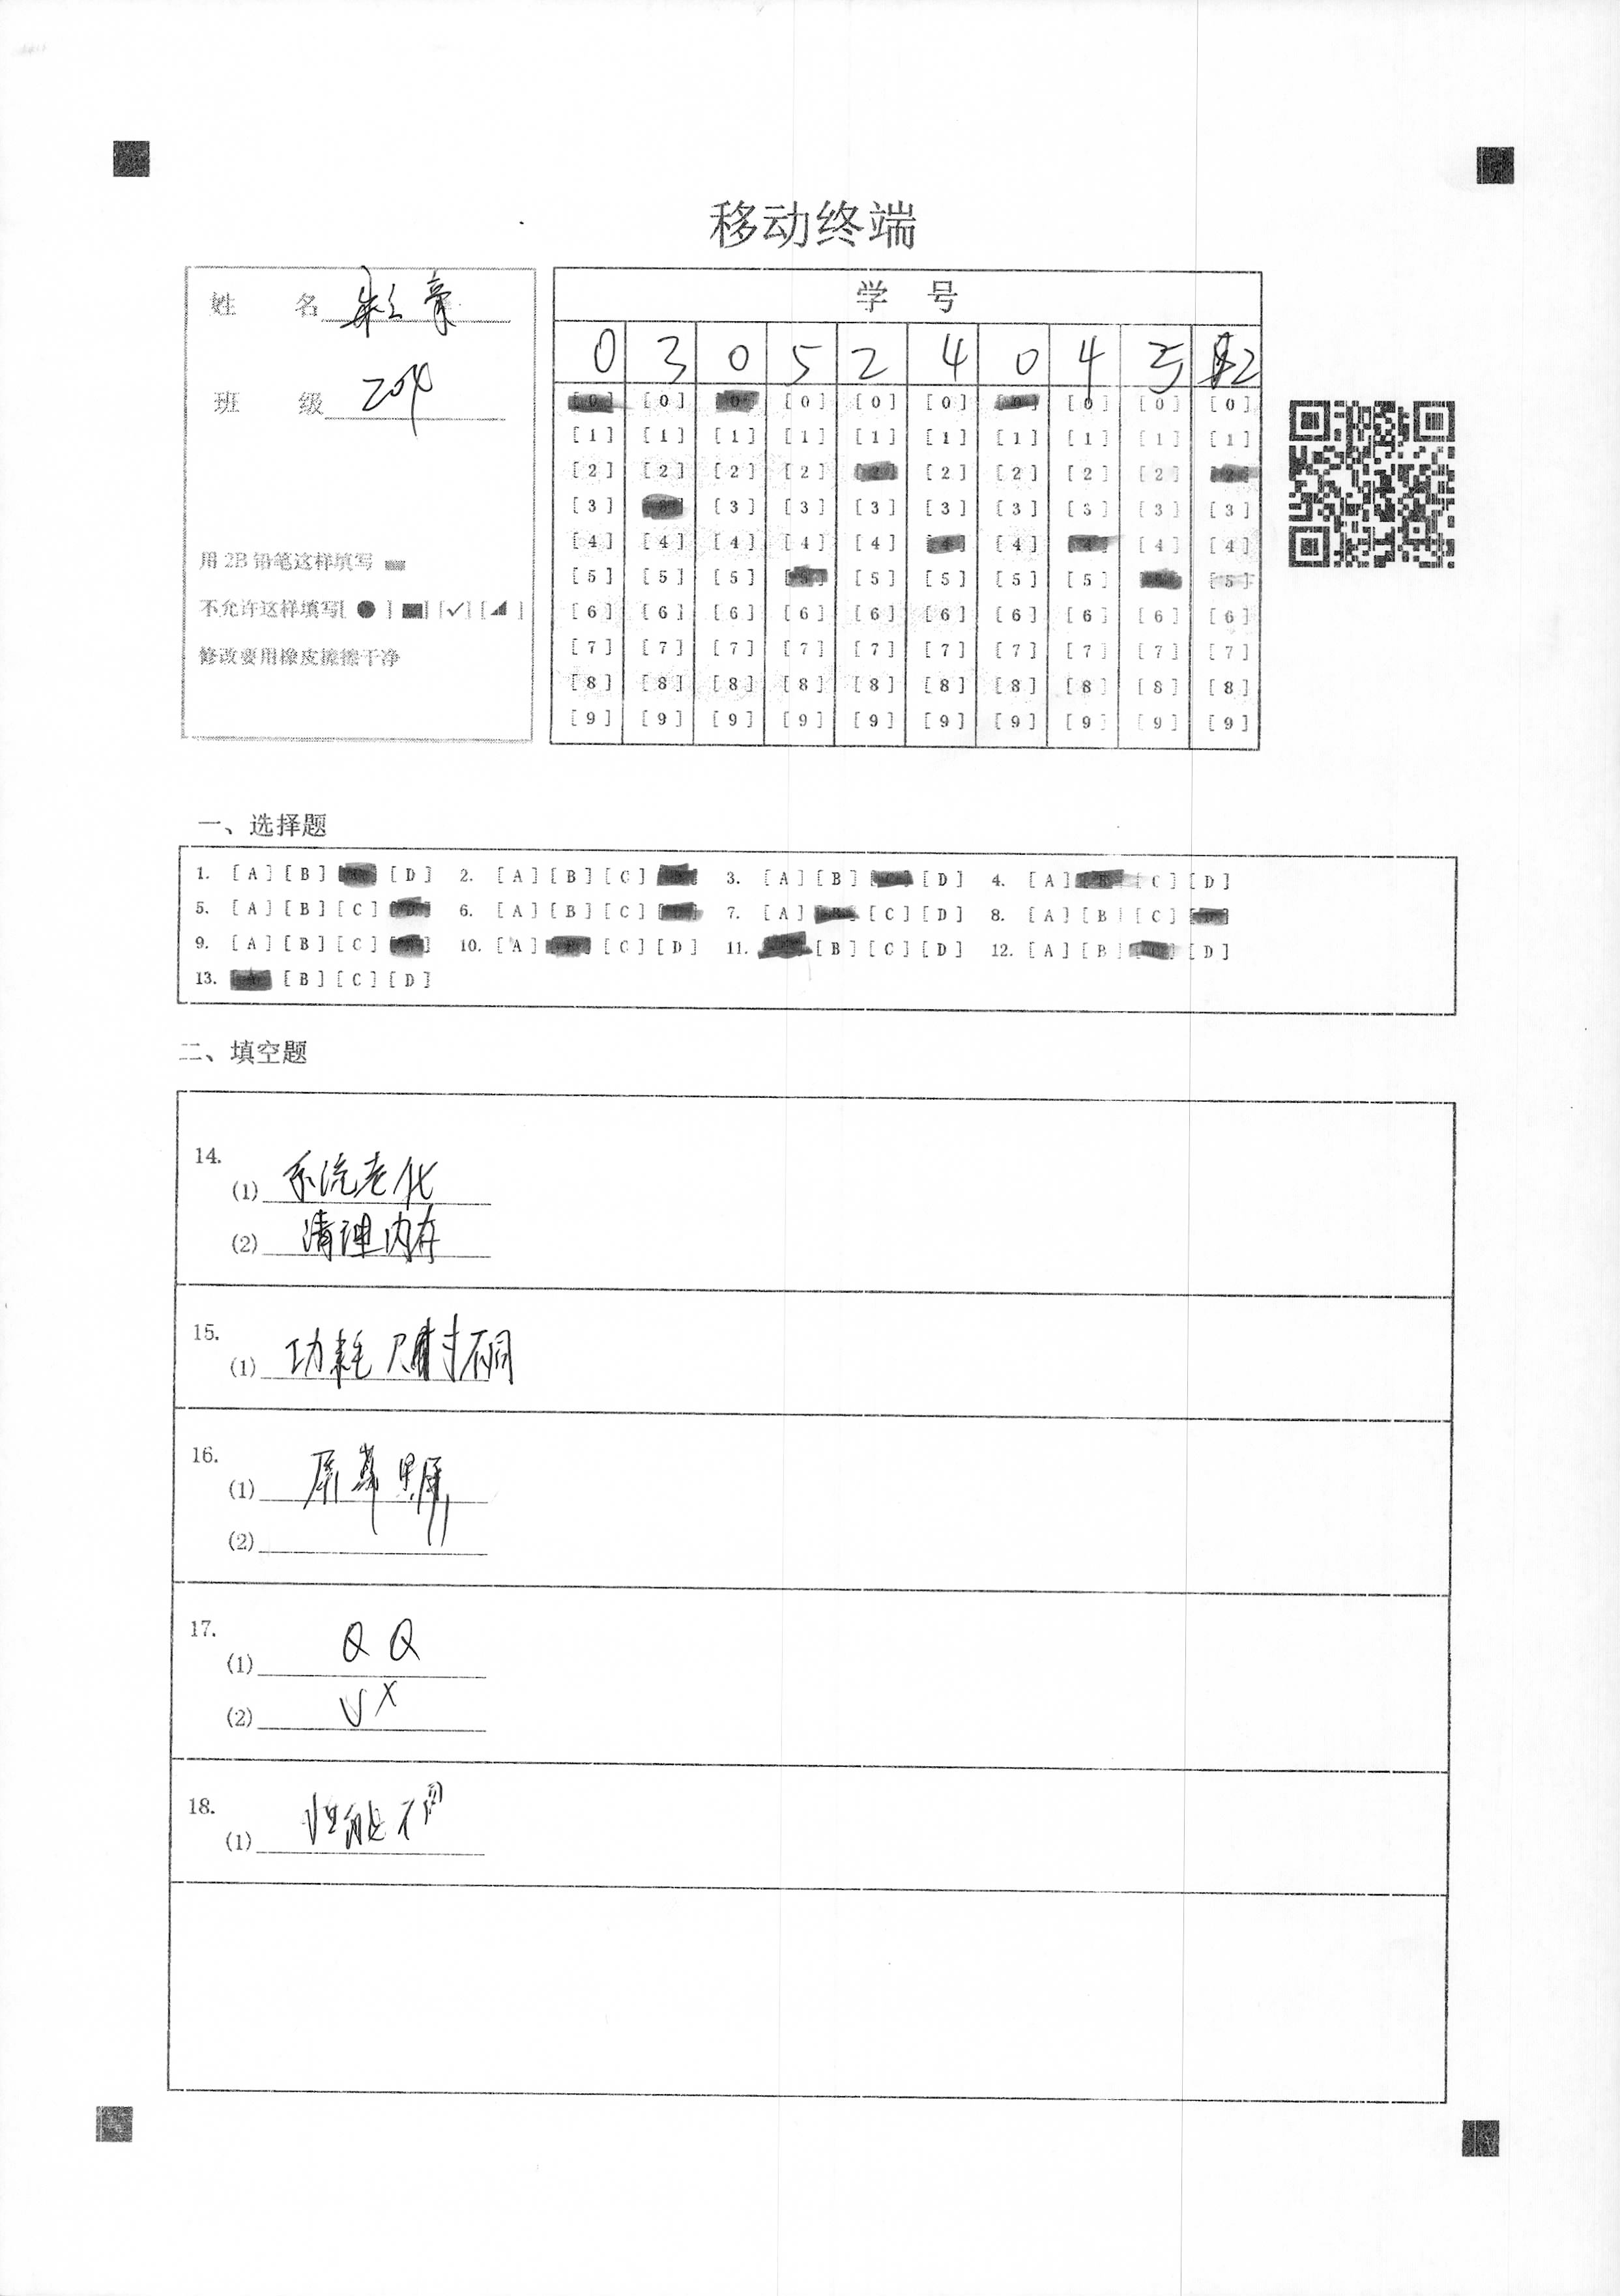 移动终端
姓 名
班 级 204
用 2B 铅笔这样填写
不允许这样填写[ ● ] [ ■ ] [✓] [◢ ]
修改要用橡皮擦擦干净
学 号
0 3 0 5 2 4 0 4 5 2
[0] [0] [0] [0] [0] [0] [0] [0] [0] [0]
[1] [1] [1] [1] [1] [1] [1] [1] [1] [1]
[2] [2] [2] [2] [2] [2] [2] [2] [2] [2]
[3] [3] [3] [3] [3] [3] [3] [3] [3] [3]
[4] [4] [4] [4] [4] [4] [4] [4] [4] [4]
[5] [5] [5] [5] [5] [5] [5] [5] [5] [5]
[6] [6] [6] [6] [6] [6] [6] [6] [6] [6]
[7] [7] [7] [7] [7] [7] [7] [7] [7] [7]
[8] [8] [8] [8] [8] [8] [8] [8] [8] [8]
[9] [9] [9] [9] [9] [9] [9] [9] [9] [9]
一、选择题
1. [A] [B] [C] [D] 2. [A] [B] [C] [D] 3. [A] [B] [C] [D] 4. [A] [B] [C] [D]
5. [A] [B] [C] [D] 6. [A] [B] [C] [D] 7. [A] [B] [C] [D] 8. [A] [B] [C] [D]
9. [A] [B] [C] [D] 10. [A] [B] [C] [D] 11. [A] [B] [C] [D] 12. [A] [B] [C] [D]
13. [A] [B] [C] [D]
二、填空题
14.
(1) 系统老化
(2) 清理内存
15.
(1) 功耗 尺寸不同
16.
(1) 屏幕黑屏
(2)
17.
(1) QQ
(2) VX
18.
(1) 性能不同